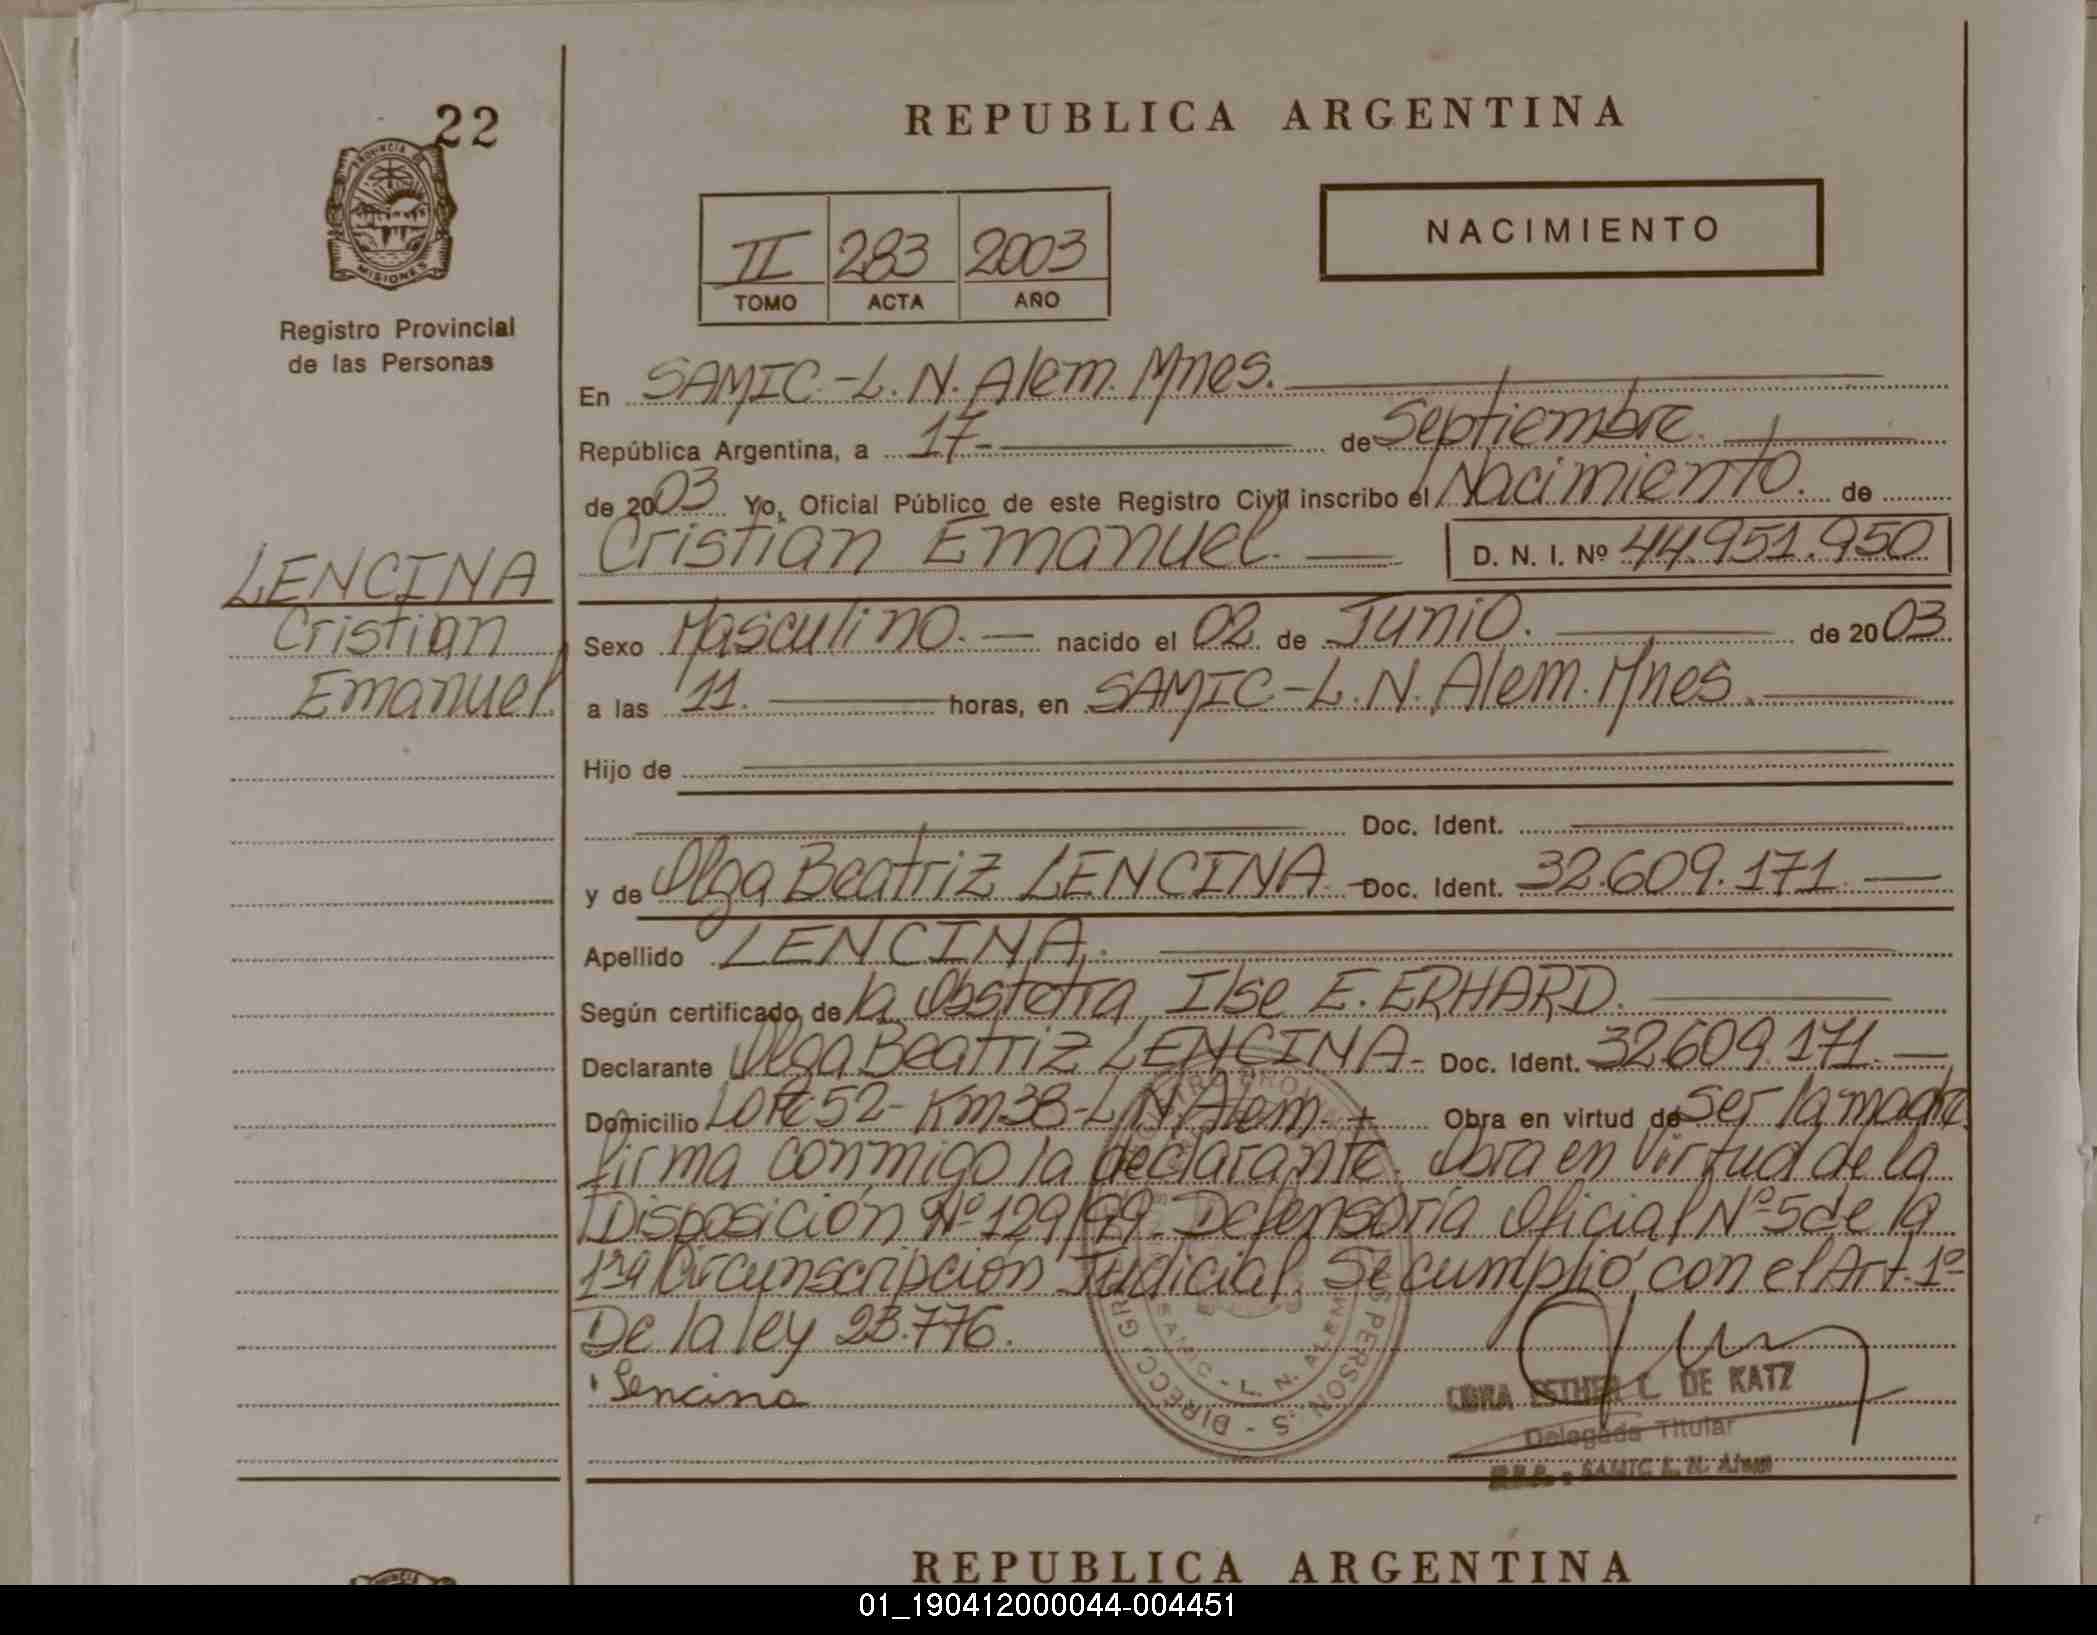 22
PROVINCIA DE
MISIONES
Registro Provincial
de las Personas
LENCINA
Cristian
Emanuel.
REPUBLICA ARGENTINA
NACIMIENTO
II 283 2003
TOMO ACTA AÑO
En SAMIC.-L.N.Alem.Mnes.
República Argentina, a 17- de Septiembre.
de 2003 Yo, Oficial Público de este Registro Civil inscribo el Nacimiento. de
Cristian Emanuel. D. N. I. Nº 44.951.950
Sexo Masculino. nacido el 02. de Junio. de 2003
a las 11. horas, en SAMIC-L.N.Alem.Mnes.
Hijo de
Doc. Ident.
y de Olga Beatriz LENCINA.- Doc. Ident. 32.609.171.
Apellido LENCINA.
Según certificado de la Obstetra Ilse E. ERHARD.
Declarante Olga Beatriz LENCINA- Doc. Ident. 32609.171.
Domicilio Lote 52- Km38-L.N.Alem. Obra en virtud de Ser la madre.
firma conmigo la declarante. Obra en Virtud de la
Disposición Nº 129/99. Defensoría Oficial Nº5 de la
1ra Circunscripción Judicial. Se cumplió con el Art. 1º
De la ley 23.776.
Lencina
ESTHER L. DE KATZ
Delegada Titular
SAMIC L. N. Alem
REPUBLICA ARGENTINA
01_190412000044-004451